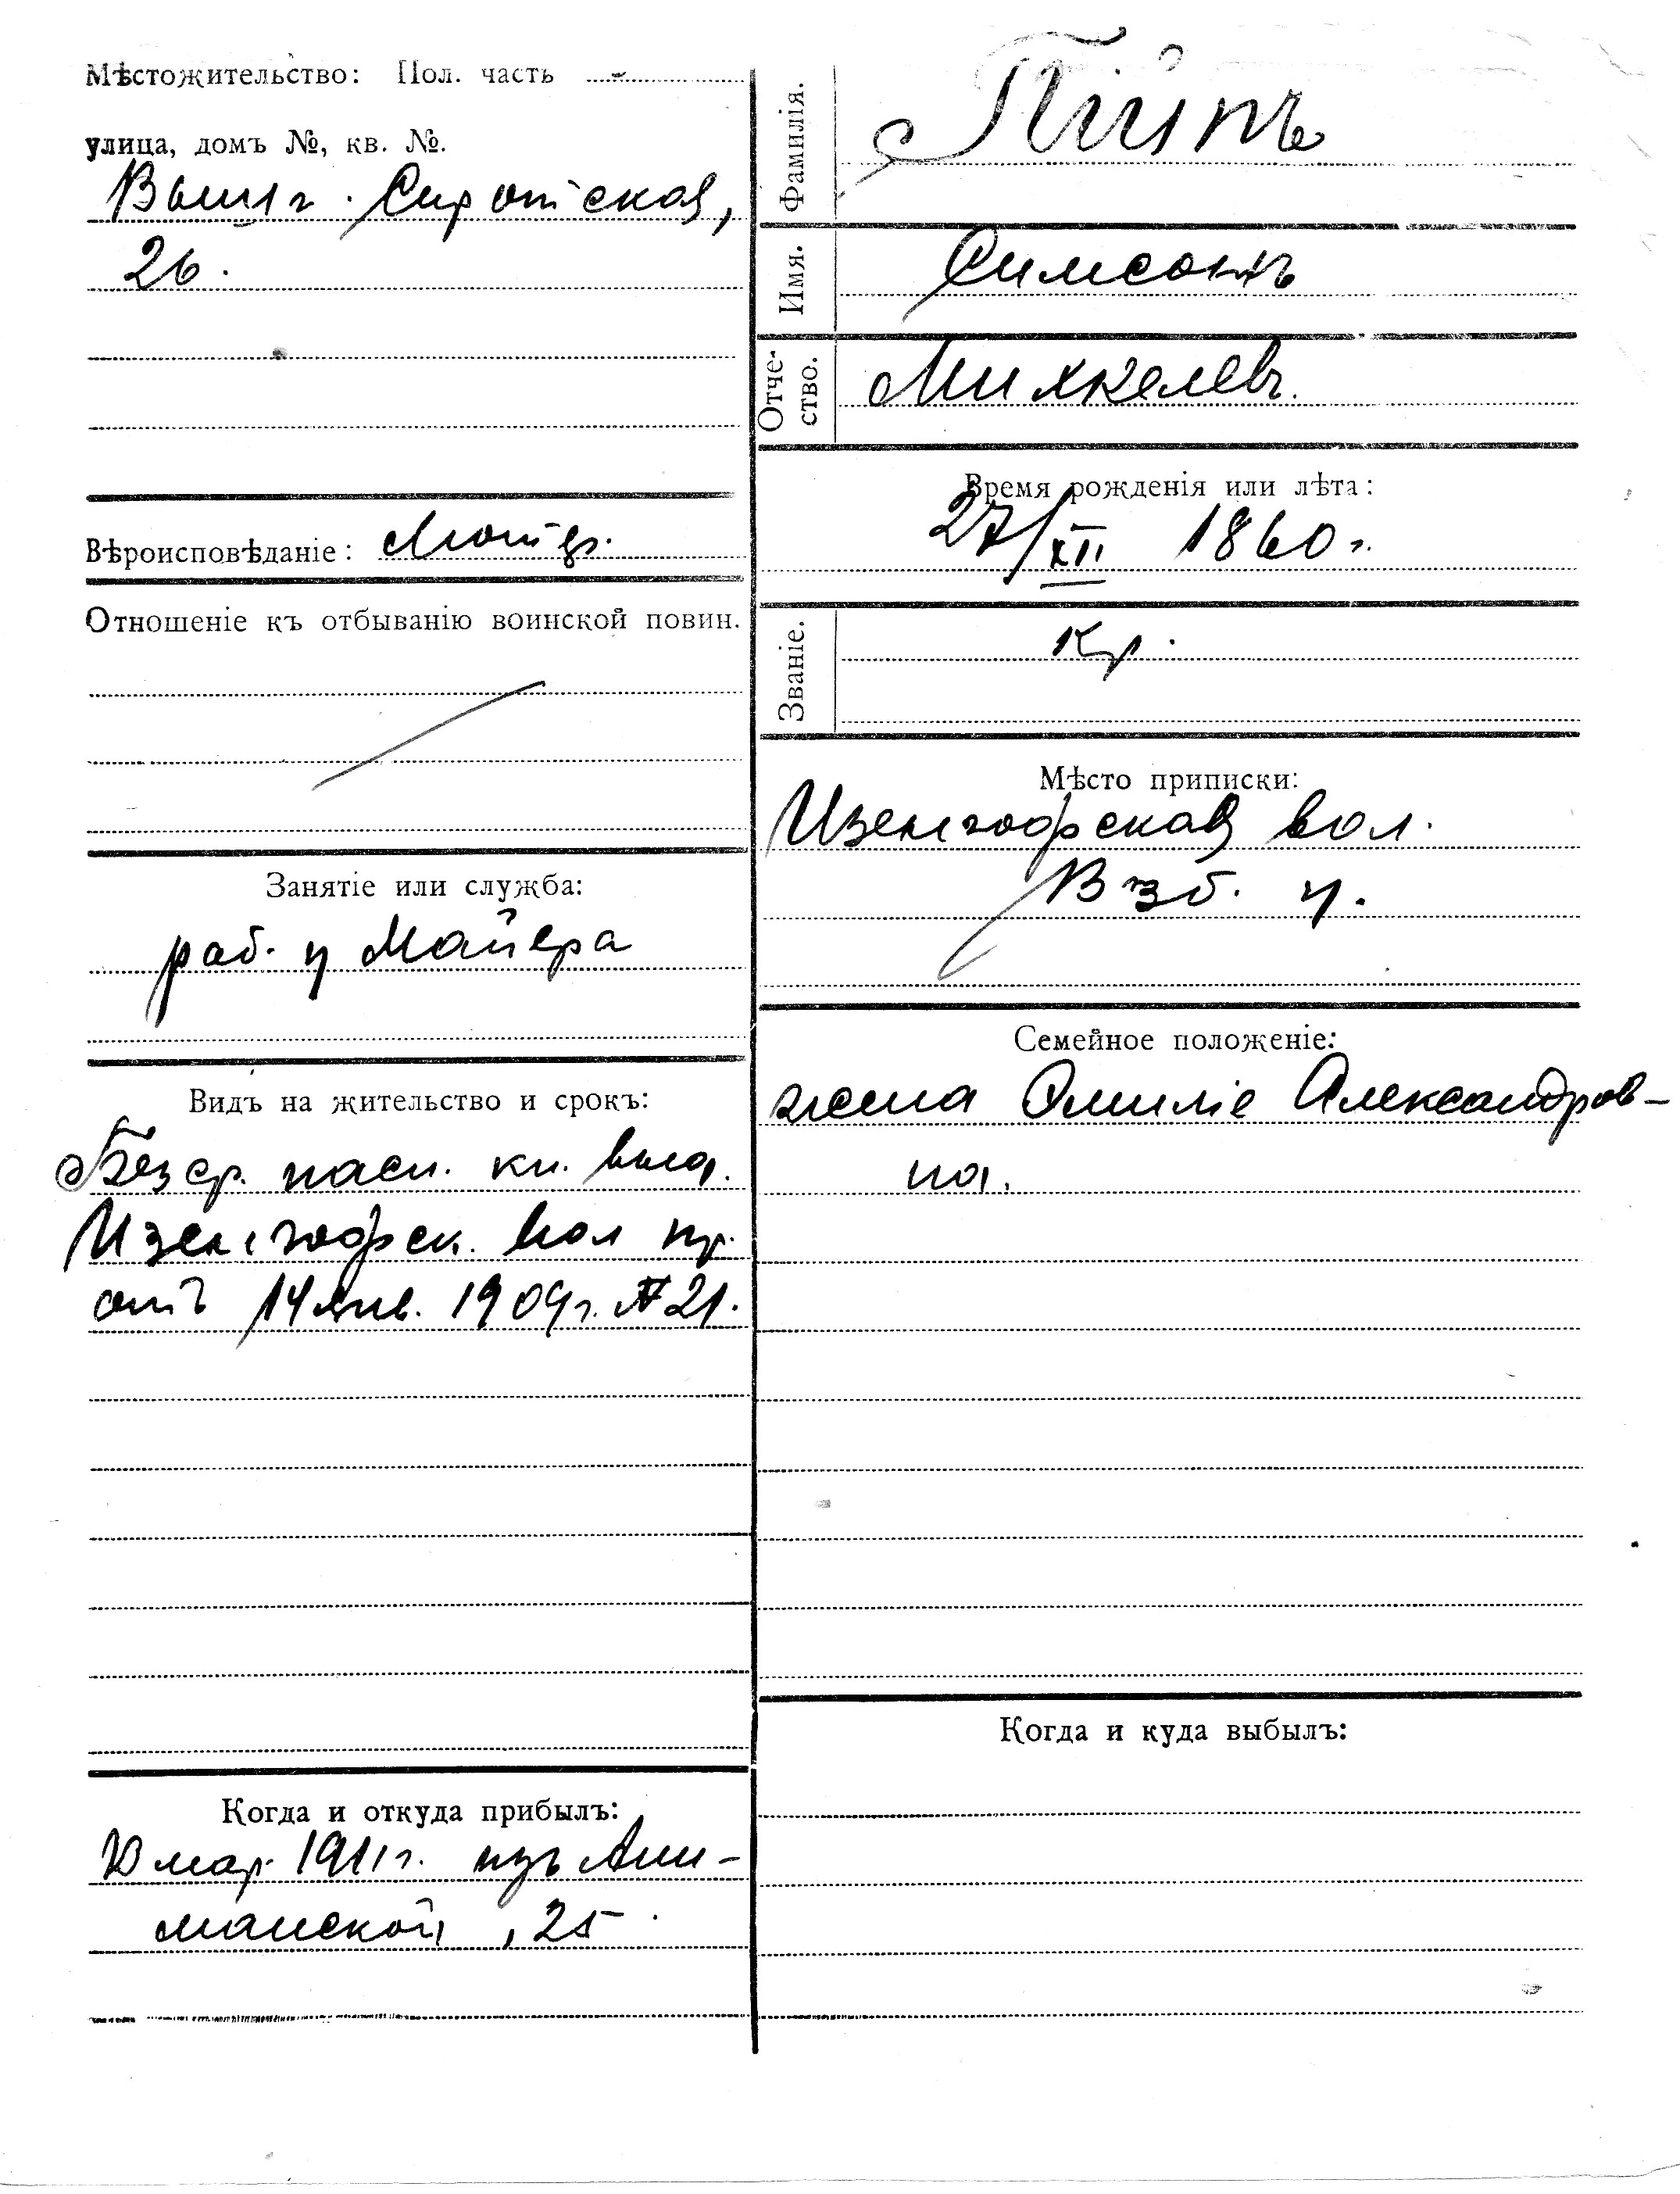 Мѣстожительство: Пол. часть -
улица, домъ №, кв. №.
Вышг. Сиротская,
26.
Вѣроисповѣданіе: Лютер.
Отношеніе къ отбыванію воинской повин.
Занятіе или служба:
раб. у Майера
Видъ на жительство и срокъ:
Безср. пасп. кн. выд.
Изенгофск. вол пр.
отъ 14 янв. 1909 г. № 21.
Когда и откуда прибылъ:
10 мар. 1911 г. изъ
манской, 25.
Фамилія.
Пійпъ
Имя.
Симсонъ
Отче-
ство.
Михкелевъ.
Время рожденія или лѣта:
27/XII 1860 г.
Званіе.
Кр.
Мѣсто приписки:
Изенгофская вол.
Везб. у.
Семейное положеніе:
жена Эмиліе Александров-
на.
Когда и куда выбылъ: